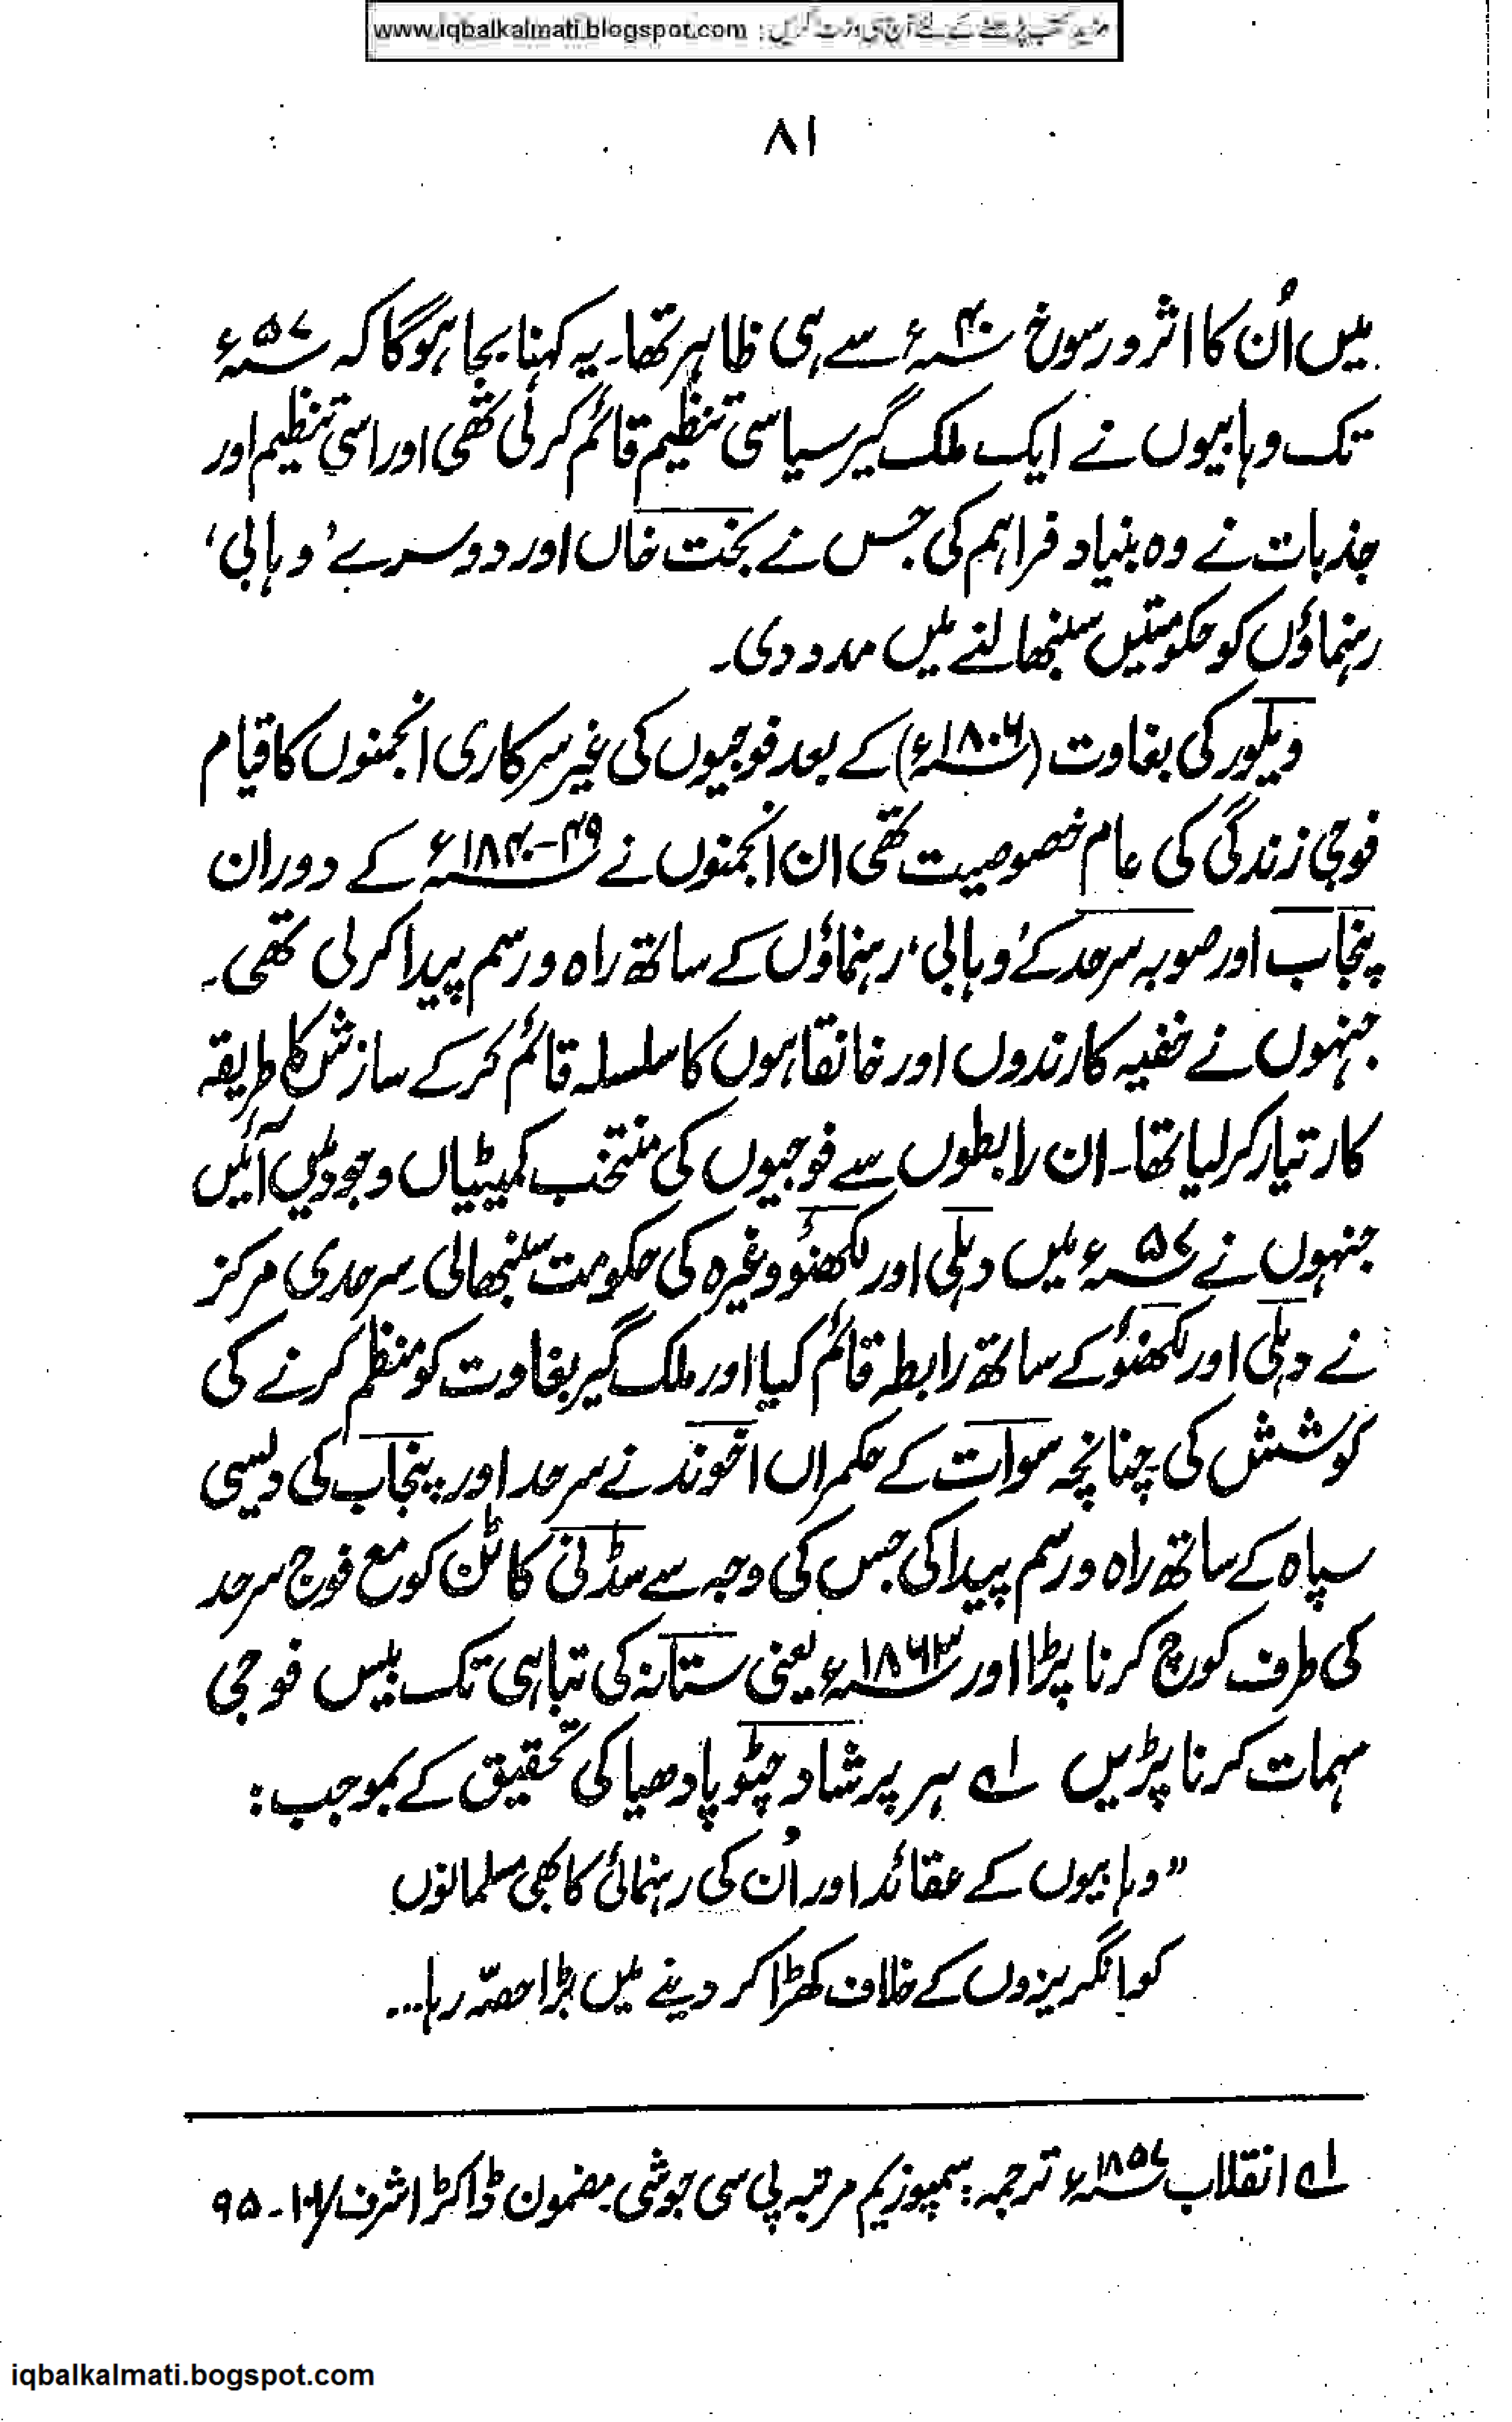 www.iqbalkalmati.blogspot.com : مزید کتب پڑھنے کے لئے آج ہی وزٹ کریں
۸۱
میں اُن کا اثر و رسوخ ۴۰ء سے ہی ظاہر تھا۔ یہ کہنا بجا ہوگا کہ ۵۷ء
تک وہابیوں نے ایک ملک گیر سیاسی تنظیم قائم کرلی تھی اور اسی تنظیم اور
جذبات نے وہ بنیاد فراہم کی جس نے بخت خاں اور دوسرے ’وہابی‘
رہنماؤں کو حکومتیں سنبھالنے میں مدد دی۔
ویلور کی بغاوت (۱۸۰۶ء) کے بعد فوجیوں کی غیر سرکاری انجمنوں کا قیام
فوجی زندگی کی عام خصوصیت تھی ان انجمنوں نے ۴۹-۱۸۴۰ء کے دوران
پنجاب اور صوبہ سرحد کے ’وہابی‘ رہنماؤں کے ساتھ راہ و رسم پیدا کرلی تھی۔
جنہوں نے خفیہ کارندوں اور خانقاہوں کا سلسلہ قائم کرکے سازش کا طریقہ
کار تیار کرلیا تھا۔ ان رابطوں سے فوجیوں کی منتخب کمیٹیاں وجود میں آئیں
جنہوں نے ۵۷ء میں دہلی اور لکھنؤ وغیرہ کی حکومت سنبھالی۔ سرحدی مرکز
نے دہلی اور لکھنؤ کے ساتھ رابطہ قائم کیا اور ملک گیر بغاوت کو منظم کرنے کی
کوشش کی چنانچہ سوات کے حکمراں اخوند نے سرحد اور پنجاب کی دیسی
سپاہ کے ساتھ راہ و رسم پیدا کی جس کی وجہ سے سڈنی کاٹن کو مع فوج سرحد
کی طرف کوچ کرنا پڑا اور ۱۸۶۳ء یعنی ستانہ کی تباہی تک بیس فوجی
مہمات کرنا پڑیں ۱ے ہر پرشاد چٹوپادھیا کی تحقیق کے بموجب:
”وہابیوں کے عقائد اور اُن کی رہنمائی کا بھی مسلمانوں
کو انگریزوں کے خلاف کھڑا کر دینے میں بڑا حصّہ رہا...
۱ے انقلاب ۱۸۵۷ء ترجمہ: سمپوزیم مرتبہ پی سی جوشی۔ مضمون ڈاکٹر اشرف/ ۹۵
iqbalkalmati.bogspot.com